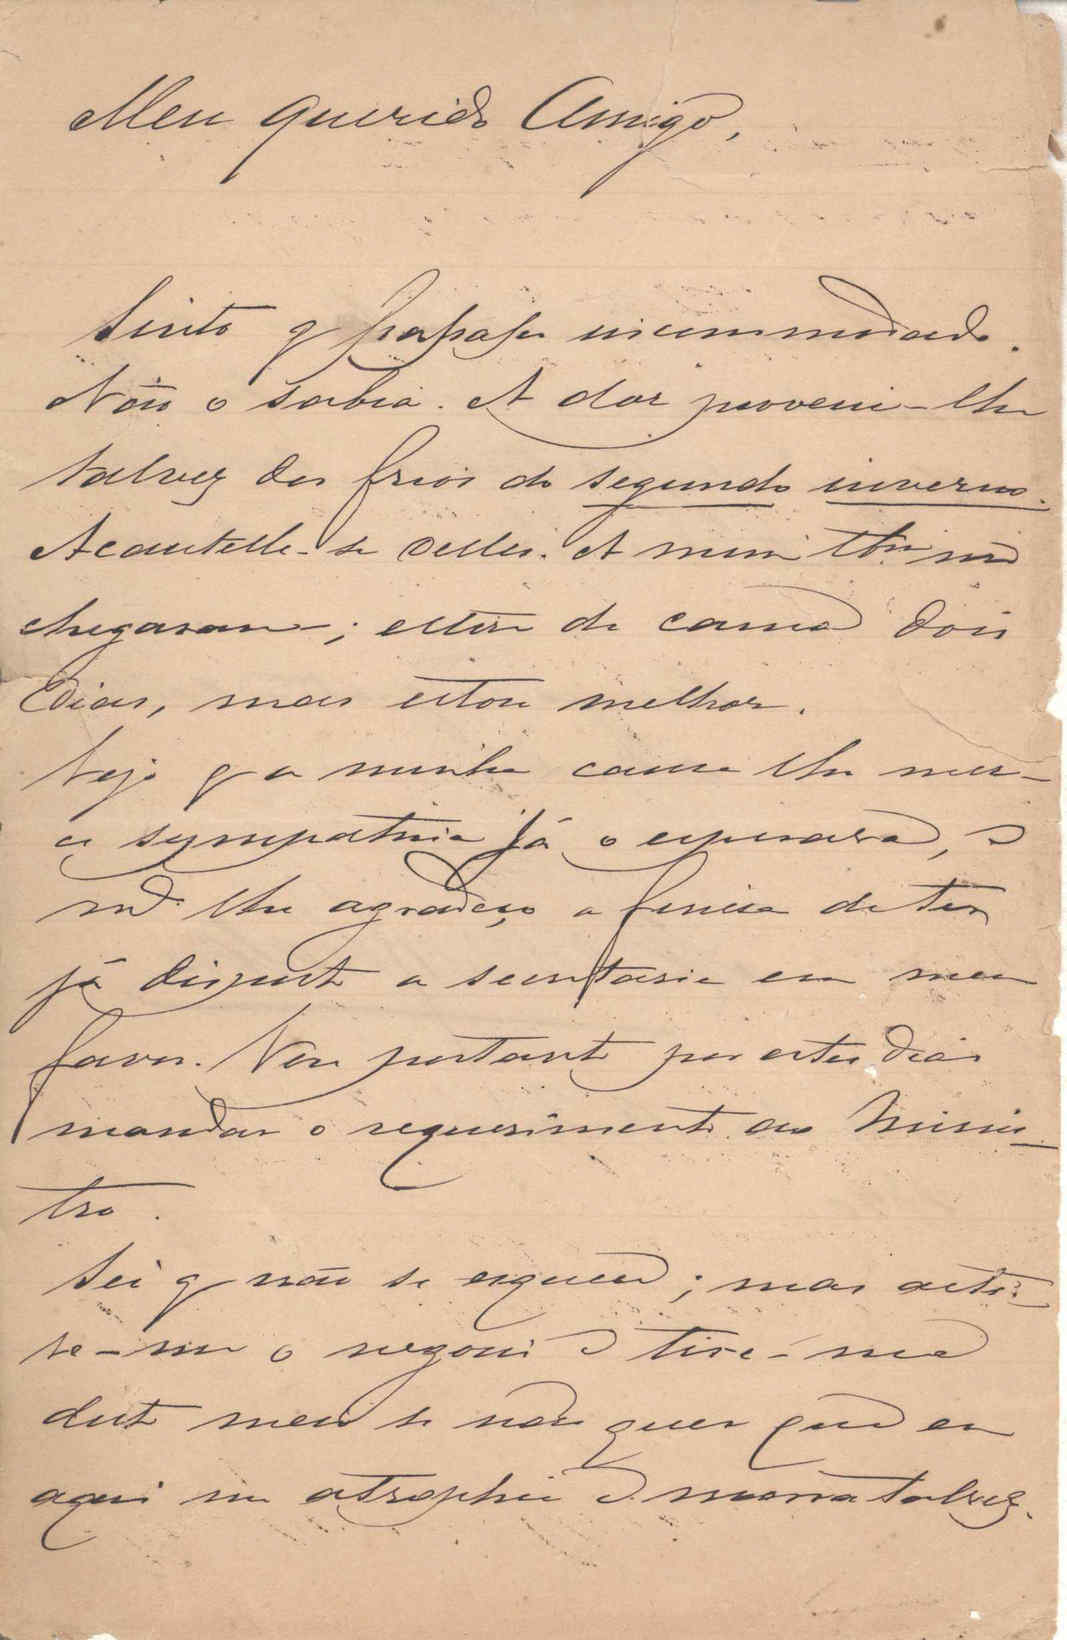 Meu querido Amigo,
Sinto q passasse incommodado.
Não o sabia. A dor proveiu-lhe
talvez dos frios do segundo inverno.
Acautelle-se delles. A mim tbm me
chegaram; estive de cama dois
dias, mas estou melhor.
Vejo q a minha causa lhe mere-
ce sympathia já o esperava, e
mto lhe agradeço a fineza de ter
já disposto a secretaria em meu
favor. Vou portanto por estes dias
mandar o requerimento ao Minis-
tro.
Sei q não se esquece; mas acti-
ve-me o negocio e tire-me
deste meio se não quer que eu
aqui me atrophie e morra talvez.